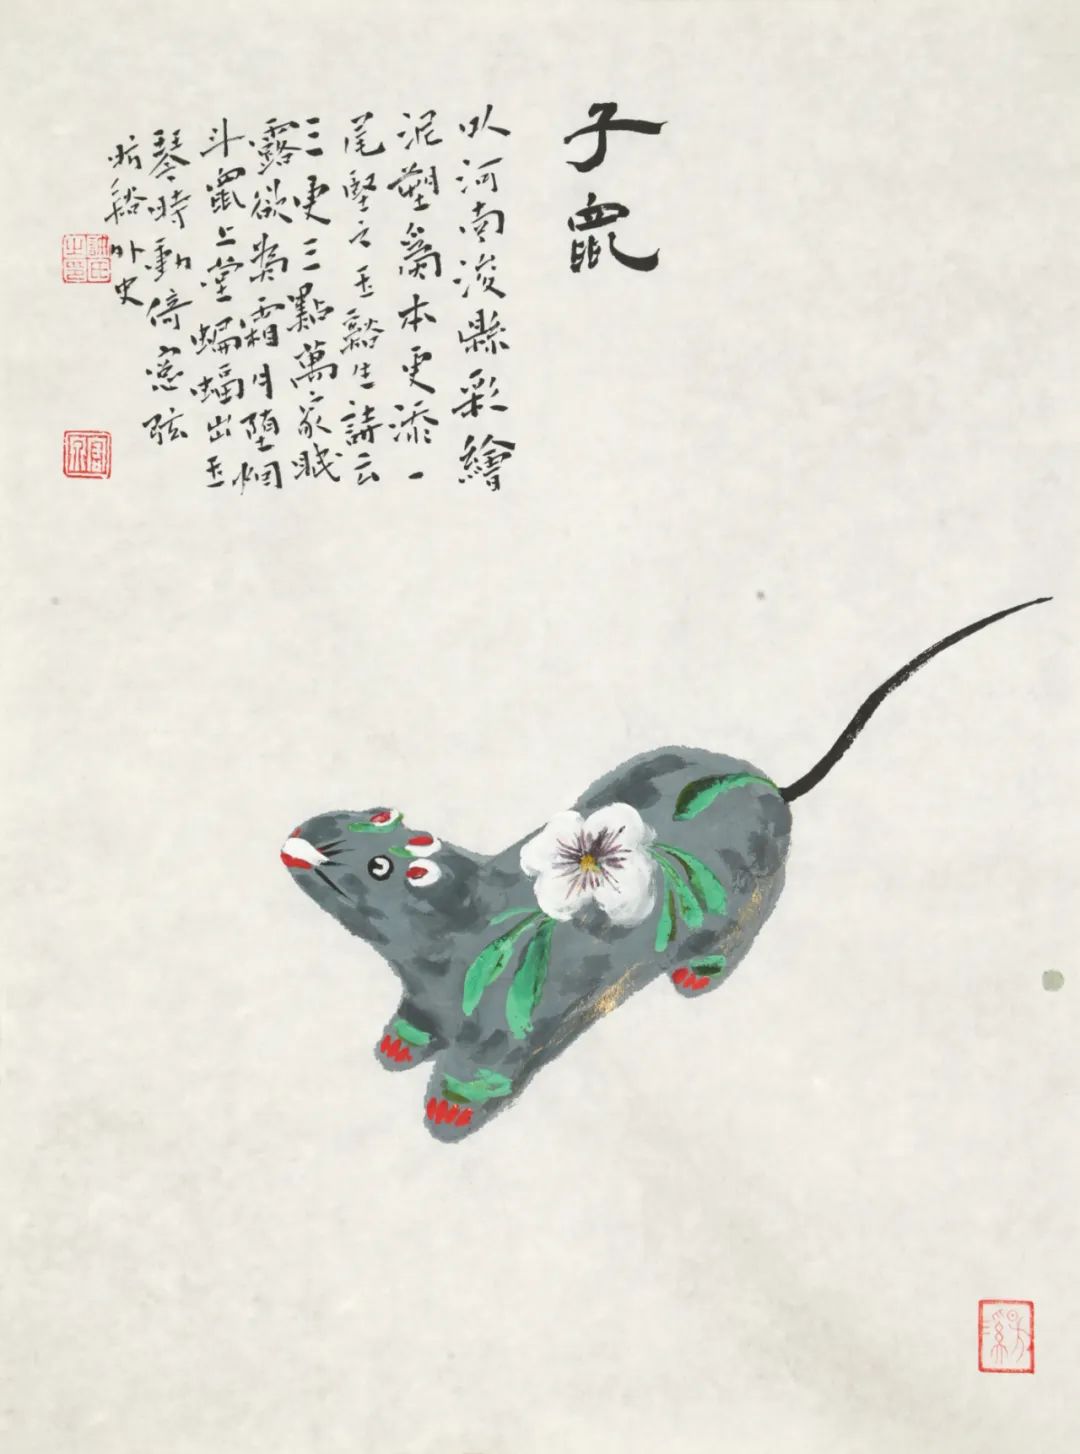 子鼠
㕥河南浚縣彩繪
泥塑為本更添一
尾竪之玉谿生詩云
三更三點萬家眠
露欲為霜月墮烟
斗鼠上堂蝙蝠出玉
琴時動倚窓弦
谿外史